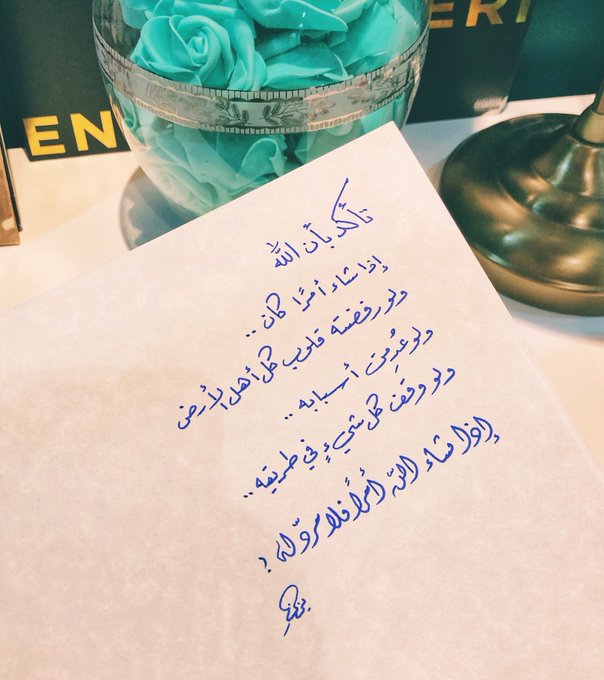 ERI
EN
تأكد بأن الله
إذا شاء أمرًا كان ..
ولو رفضته قلوب كل أهل الأرض
ولو عُدِمت أسبابه ..
ولو وقف كل شيءٍ في طريقه ..
إذا شاء الله أمرًا فلا مردّ له !